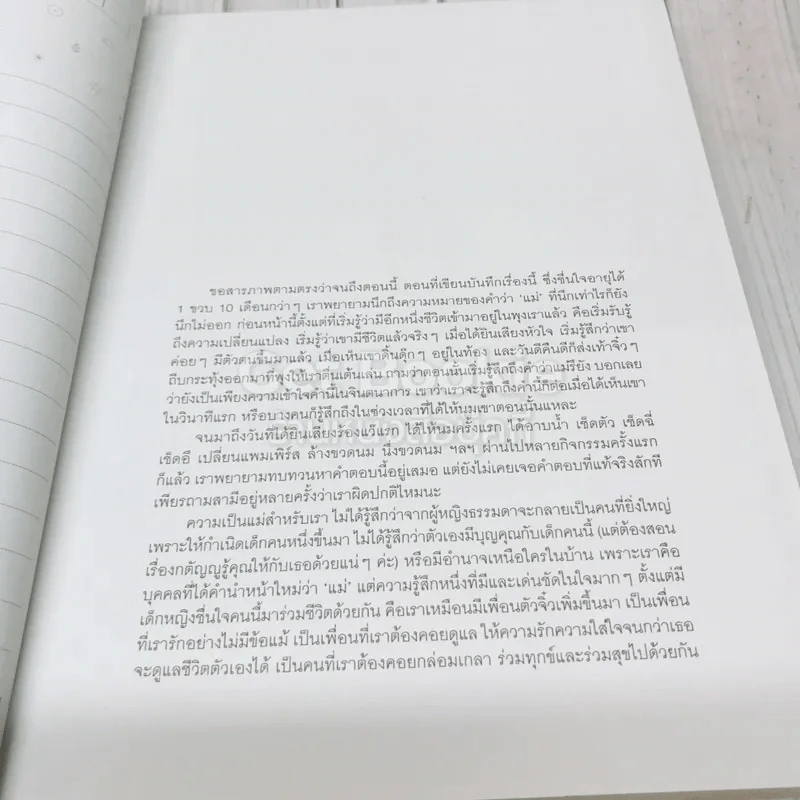 ขอสารภาพตามตรงว่าจนถึงตอนนี้ ตอนที่เขียนบันทึกเรื่องนี้ ซึ่งชื่นใจอายุได้
1 ขวบ 10 เดือนกว่าๆ เราพยายามนึกถึงความหมายของคำว่า 'แม่' ที่นึกเท่าไรก็ยัง
นึกไม่ออก ก่อนหน้านี้ตั้งแต่ที่เริ่มรู้ว่ามีอีกหนึ่งชีวิตเข้ามาอยู่ในพุงเราแล้ว คือเริ่มรับรู้
ถึงความเปลี่ยนแปลง เริ่มรู้ว่าเขามีชีวิตแล้วจริงๆ เมื่อได้ยินเสียงหัวใจ เริ่มรู้สึกว่าเขา
ค่อยๆ มีตัวตนขึ้นมาแล้ว เมื่อเห็นเขาดิ้นดุ๊กๆ อยู่ในท้อง และวันดีคืนดีก็ส่งเท้าจิ๋วๆ
ถีบกระทุ้งออกมาที่พุงให้เราตื่นเต้นเล่น ถามว่าตอนนั้นเริ่มรู้สึกถึงคำว่าแม่รึยัง บอกเลย
ว่ายังเป็นเพียงความเข้าใจคำนี้ในจินตนาการ เขาว่าเราจะรู้สึกถึงคำนี้ก็ต่อเมื่อได้เห็นเขา
ในวินาทีแรก หรือบางคนก็รู้สึกถึงในช่วงเวลาที่ได้ให้นมเขาตอนนั้นแหละ
จนมาถึงวันที่ได้ยินเสียงร้องแว้แรก ได้ให้นมครั้งแรก ได้อาบน้ำ เช็ดตัว เช็ดฉี่
เช็ดอึ เปลี่ยนแพมเพิร์ส ล้างขวดนม นึ่งขวดนม ฯลฯ ผ่านไปหลายกิจกรรมครั้งแรก
ก็แล้ว เราพยายามทบทวนหาคำตอบนี้อยู่เสมอ แต่ยังไม่เคยเจอคำตอบที่แท้จริงสักที
เพียรถามสามีอยู่หลายครั้งว่าเราผิดปกติไหมนะ
ความเป็นแม่สำหรับเรา ไม่ได้รู้สึกว่าจากผู้หญิงธรรมดาจะกลายเป็นคนที่ยิ่งใหญ่
เพราะให้กำเนิดเด็กคนหนึ่งขึ้นมา ไม่ได้รู้สึกว่าตัวเองมีบุญคุณกับเด็กคนนี้ (แต่ต้องสอน
เรื่องกตัญญูรู้คุณให้กับเธอด้วยแน่ๆ ค่ะ) หรือมีอำนาจเหนือใครในบ้าน เพราะเราคือ
บุคคลที่ได้คำนำหน้าใหม่ว่า 'แม่' แต่ความรู้สึกหนึ่งที่มีและเด่นชัดในใจมากๆ ตั้งแต่มี
เด็กหญิงชื่นใจคนนี้มาร่วมชีวิตด้วยกัน คือเราเหมือนมีเพื่อนตัวจิ๋วเพิ่มขึ้นมา เป็นเพื่อน
ที่เรารักอย่างไม่มีข้อแม้ เป็นเพื่อนที่เราต้องคอยดูแล ให้ความรักความใส่ใจจนกว่าเธอ
จะดูแลชีวิตตัวเองได้ เป็นคนที่เราต้องคอยกล่อมเกลา ร่วมทุกข์และร่วมสุขไปด้วยกัน